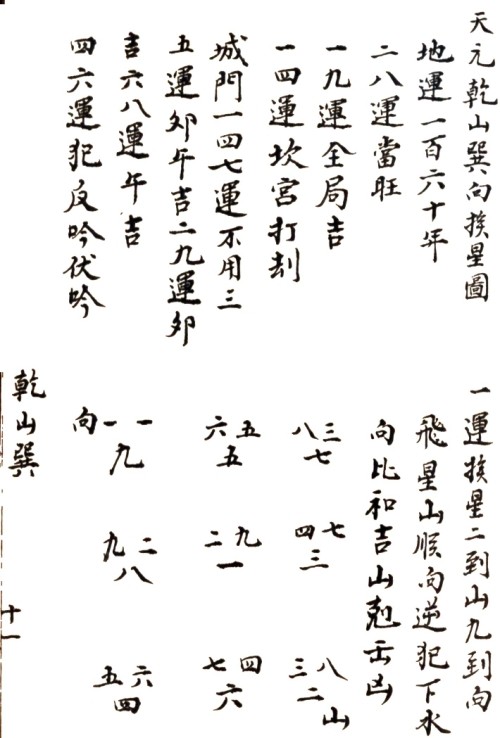 天元乾山巽向挨星圖
地運一百六十年
二八運當旺
一九運全局吉
一四運坎宮打刦
城門一四七運不用三
五運夘午吉二九運夘
吉六八運午吉
四六運犯反吟伏吟
一運挨星二到山九到向
飛星山順向逆犯下水
向比和吉山尅出凶
向一一 六五 八三
九 五 七
九二 二九 四七
八 一 三
五六 七四 三八
四 六 二山
乾山巽
十一